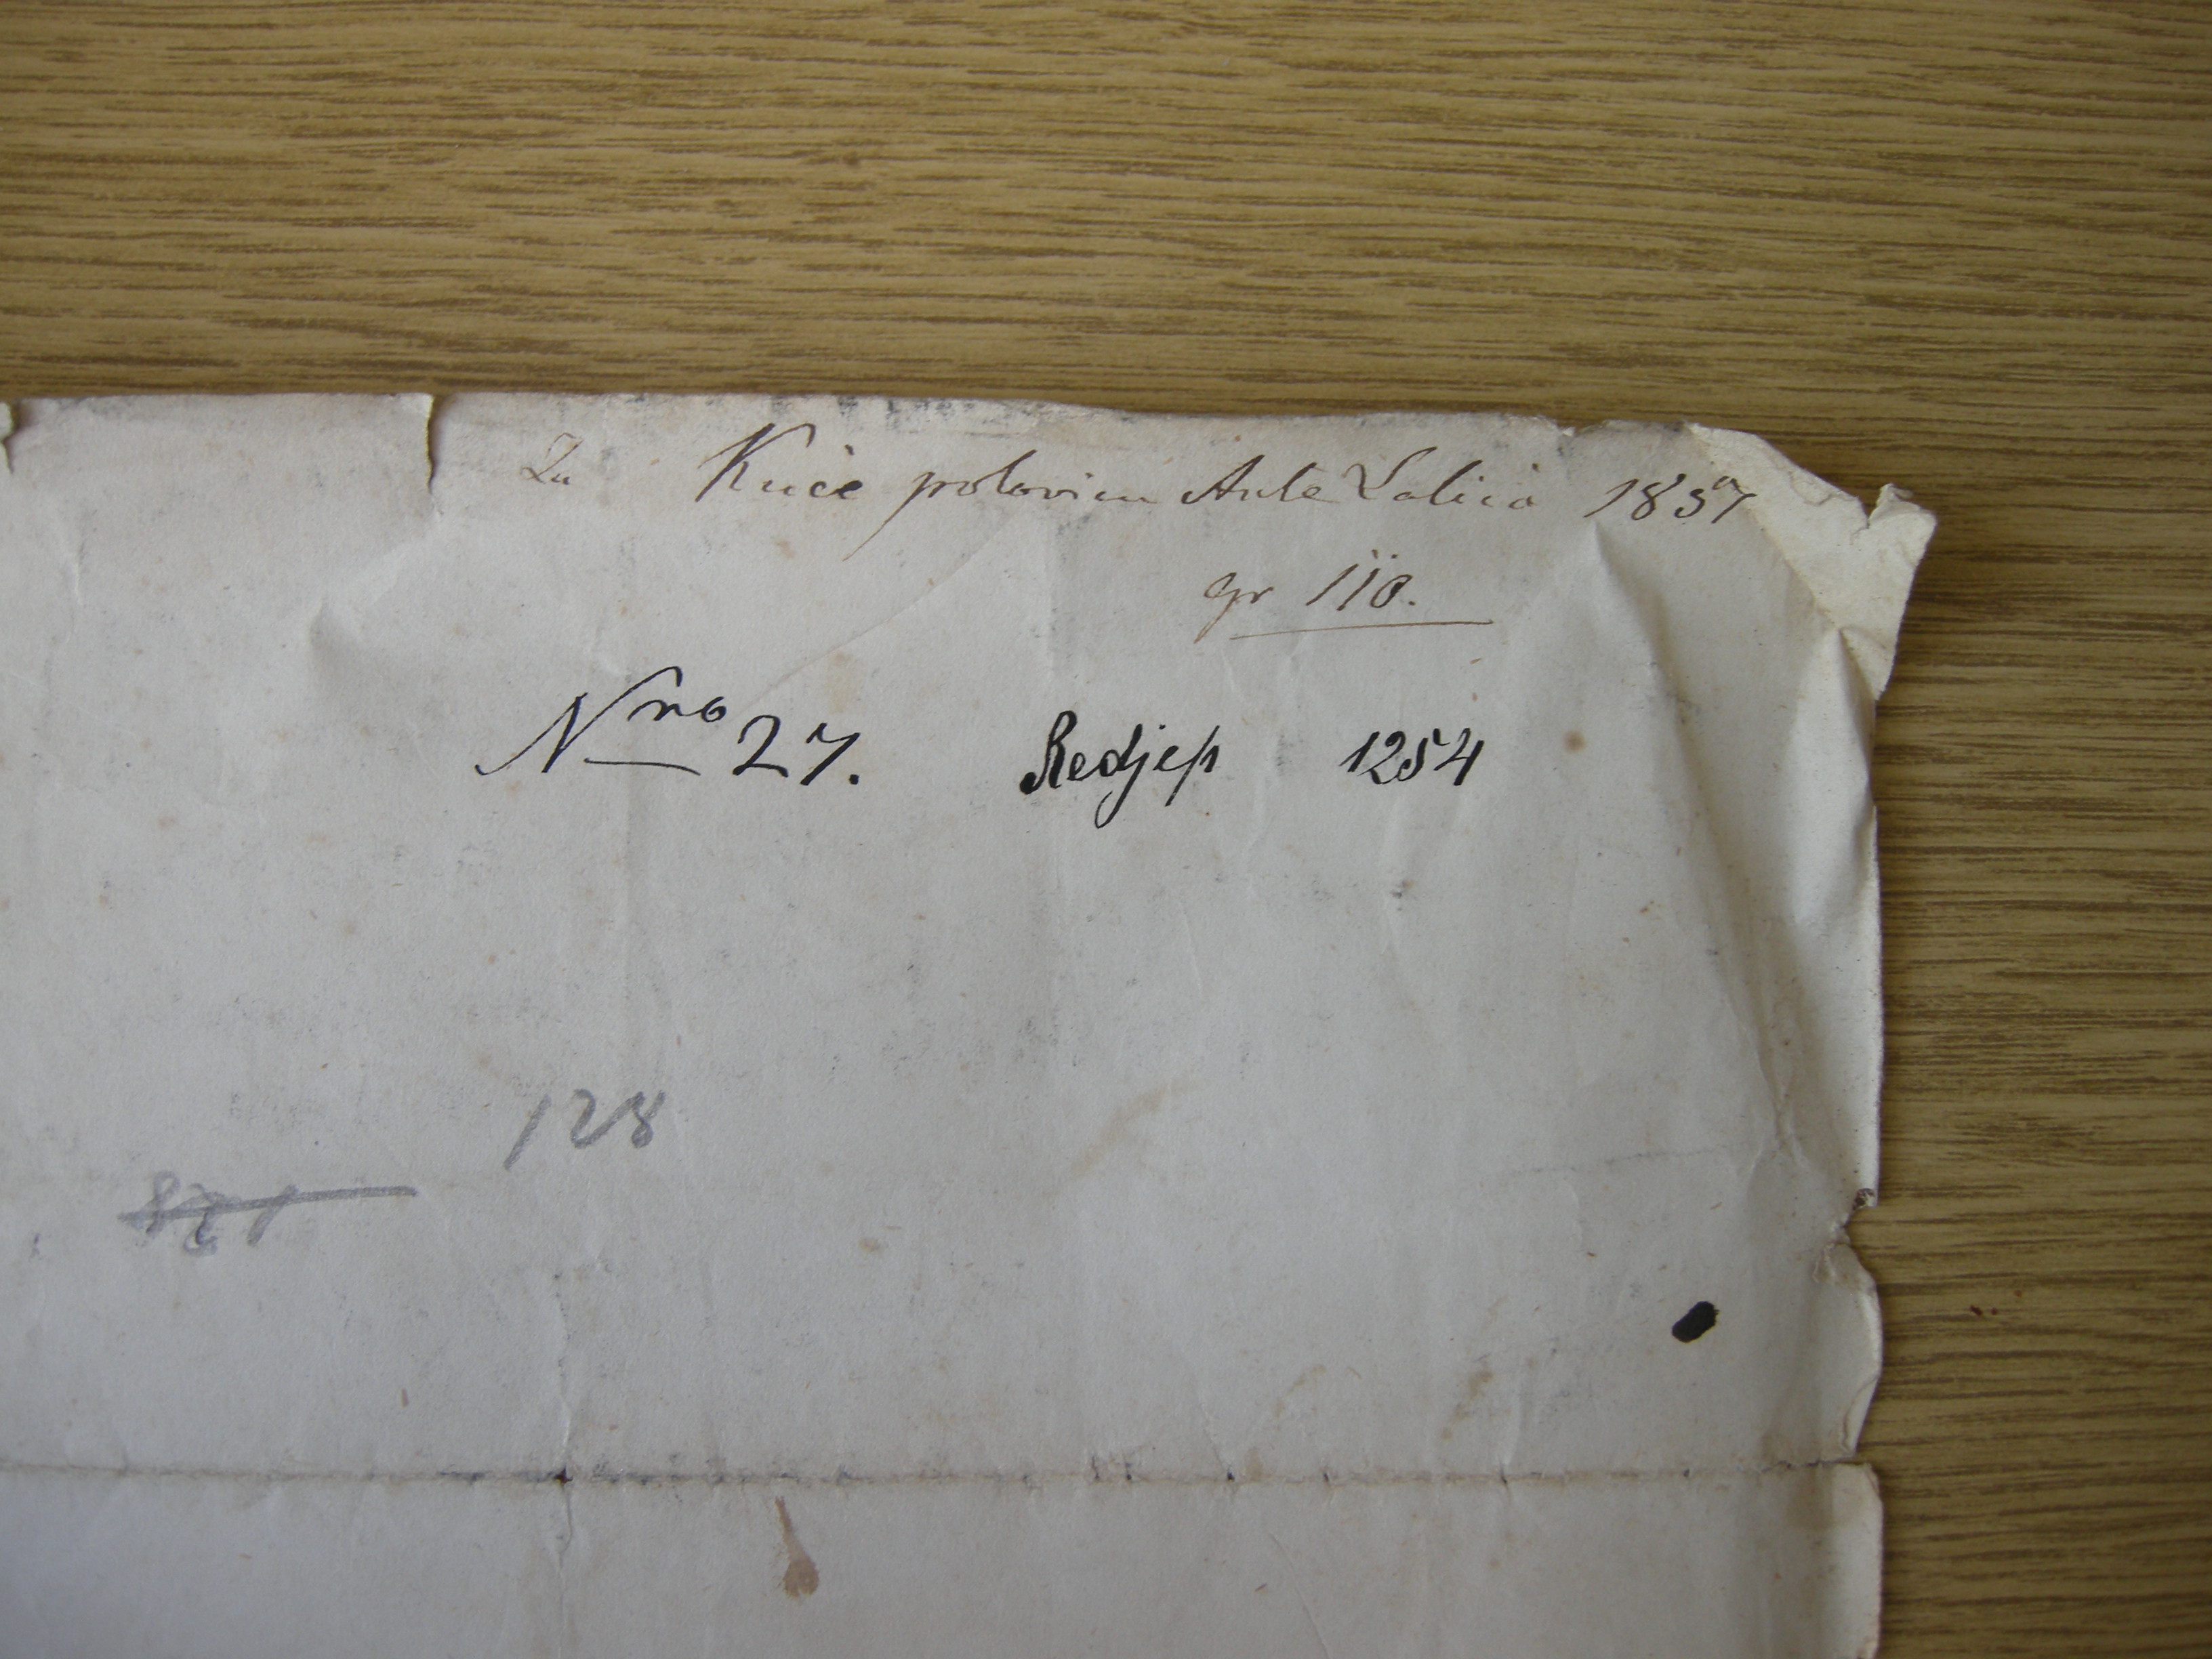 Za Kuće polovicu Ante Lalića 1837
gr 110.
Nro 27. Redjep 1254
128